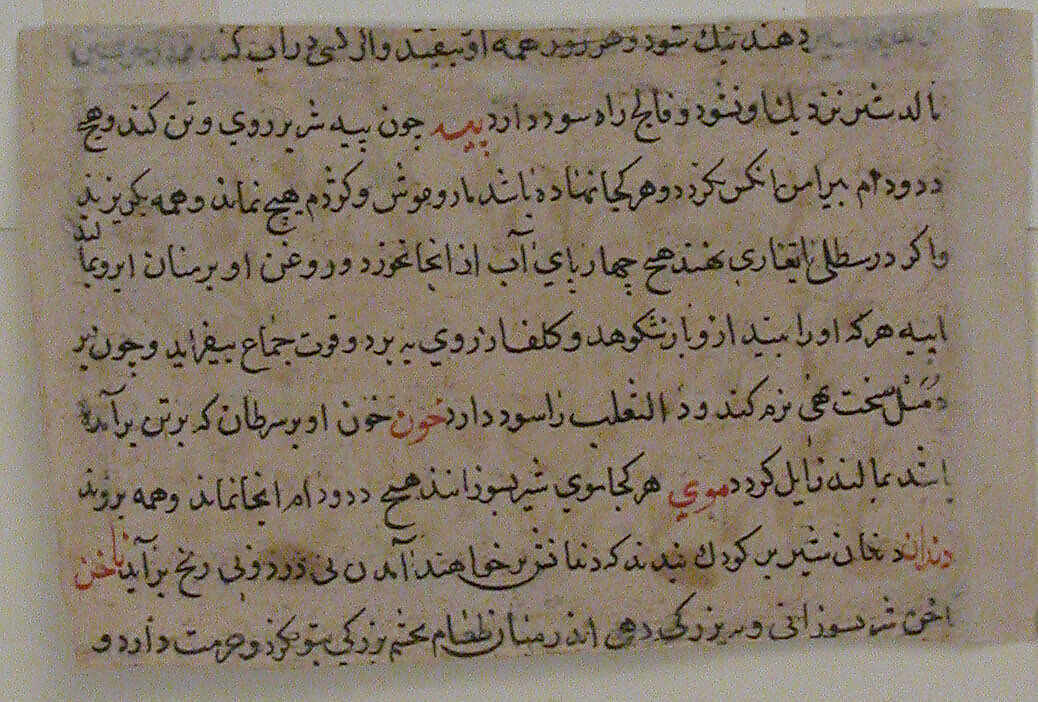 دهند نیك شود و هر روز همه او بیفتد واکر کسی در اب کند
نالد شیر نزدیك او نشود و فالج راه سود دارد پیه چون پیه شیر بر روي و تن کند و هیچ
دد و دام بیرامن انکس نکردد و هر کجا نهاده باشد مار و موش و کژدم هیچ نماند و همه بکریزند
واکر در سطلی یا تغاری نهند هیچ چهار پاي آب از انجا نخورد و روغن او بر میان ابرو بمالند
پیه هر که او را بیند ازو باز شکوهد و کلف از روي ببرد و قوت جماع بیفزاید و چون بر
دمل سخت نهی نرم کند و دا الثعلب را سود دارد خون خون او بر سرطان که بر تن برآمده
باشد بمالند زایل کردد موي هر کجا موي شیر بسوزانند هیچ دد و دام انجا نماند و همه بروند
دندان دندان شیر بر کودك بندند که دندانش بر خواهند آمدن بی درد و بی رنج برآید ناخن
ناخن شیر بسوزانی و به بزرکی دهی اندر میان طعام بچشم بزرکی بتو نکرد و حرمت دارد و